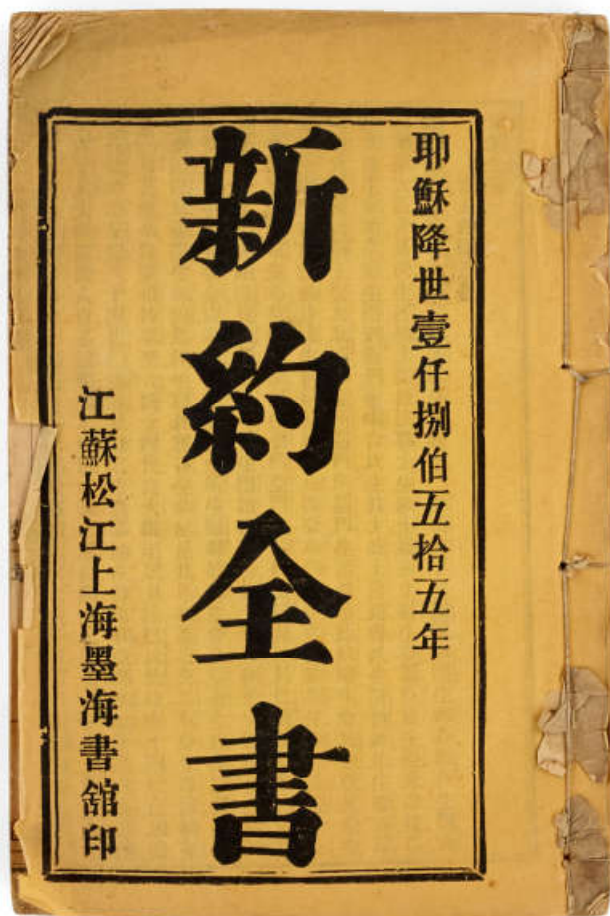 耶穌降世壹仟捌伯五拾五年
新約全書
江蘇松江上海墨海書舘印